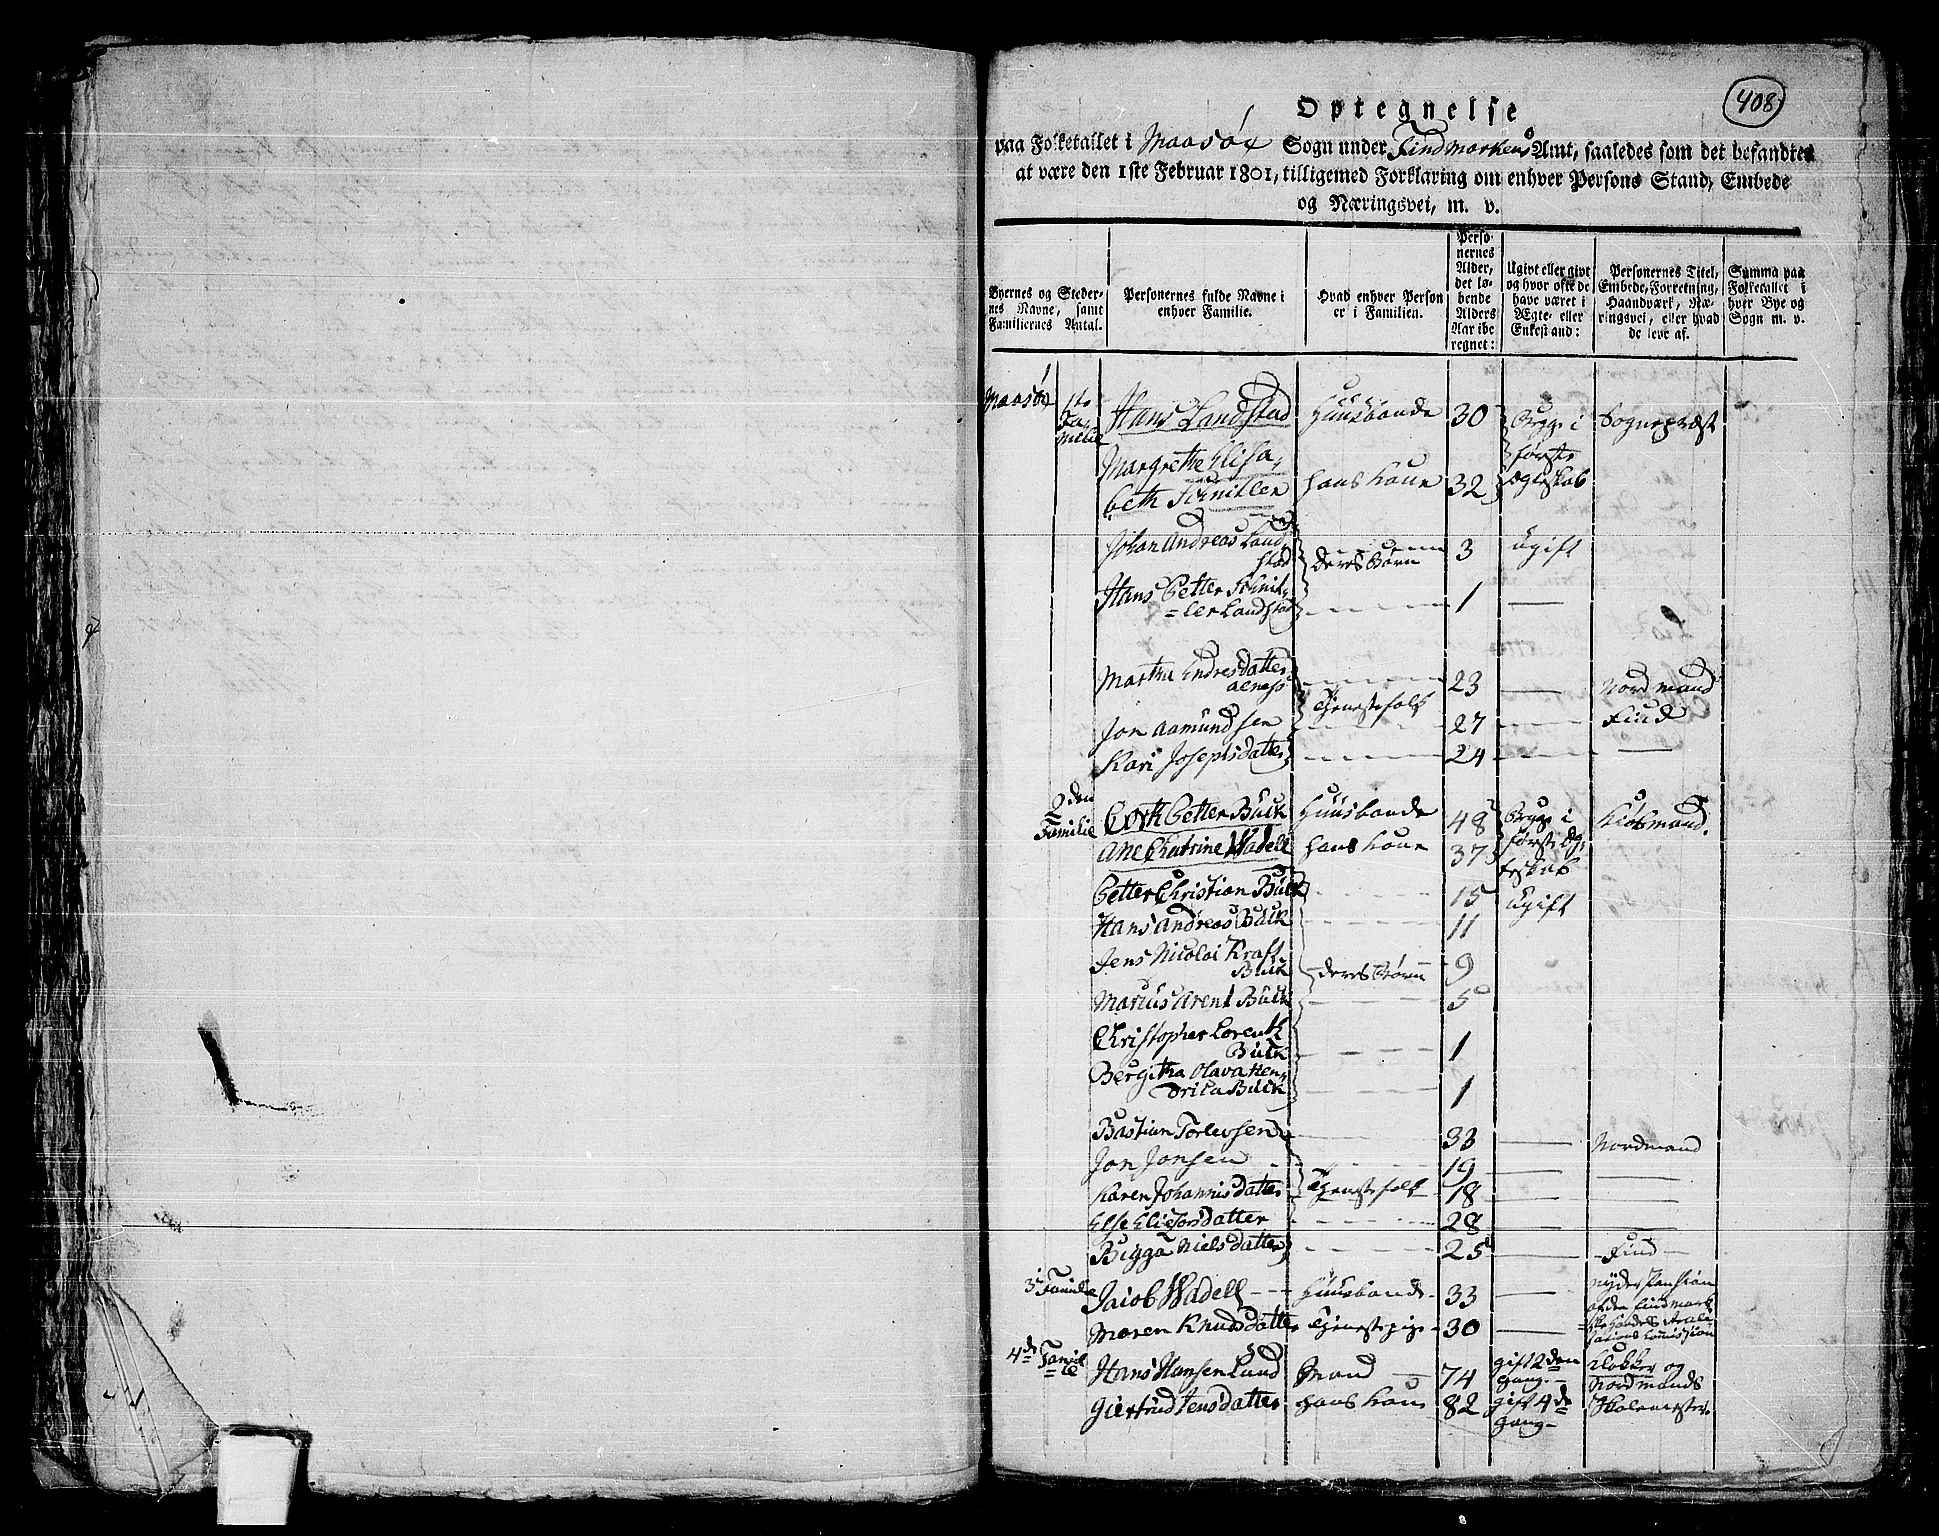 408
Optegnelse
paa Folketallet i Maasøe Sogn under Findmarkens Amt, saaledes som det befandtes
at være den 1ste Februar 1801, tilligemed Forklaring om enhver Persons Stand, Embede
og Næringsvei, m. v.
Byernes og Stedernes Navne, samt Familiernes Antal.
Personernes fulde Navne i enhver Familie.
Hvad enhver Person er i Familien.
Personernes Alder, det løbende Alders Aar iberegnet:
Ugivt eller givt og hvor ofte de have været i Ægte- eller Enkestand:
Personernes Titel, Embede, Forretning, Haandværk, Næringsvei, eller hvad de leve af.
Summa paa Folketallet i hver Bye og Sogn m. v.
Maasøe 1te Familie Hans Landstad Huusbonde 30 Begge i Sognepræst
første
Margrethe Elisa-
beth Schnitler hans Kone 32 Ægteskab
Johan Andreas Land
stad deres Børn 3 ugift
Hans Petter Schnit-
=ler Landstad 1 —
Martha Endresdatter 23 — Nordmand
Tjenestefolk
Jon Aamundsen 27 — Find
Kari Josephsdatter 24 — —
2den Familie Cort Petter Buck Huusbonde 48 Begge i Kiøbmand.
Ane Chatrine Wadell hans Kone 37 første Æg-
teskab
Petter Christian Buck 15 ugift
Hans Andreas Buck 11
Jens Nicolai Kraft
Buck deres Børn 9
Marius Arent Buck 5
Christopher Lorentz
Buck 1
Bergitha Olava Hen-
drica Buck 1
Bastian Torlevsen 33 — Nordmand
Jon Jonsen 19 — —
Karen Johannisdatter Tjenestefolk 18 — —
Else Eliesersdatter 28 — —
Bigga Nielsdatter 25 — Find —
3de Familie Jacob Wadell Huusbonde 33 — nyder Pension
af den Findmark
ske Handels Reali-
sations Commission
Maren Knudsdatter Tjenestepige 30 —
4de Familie Hans Hansen Lund Mand 74 gift 2den gang Klokker og
Nordmands
Giertrud Jensdatter hans Kone 82 gift 4de gang Skolemester.